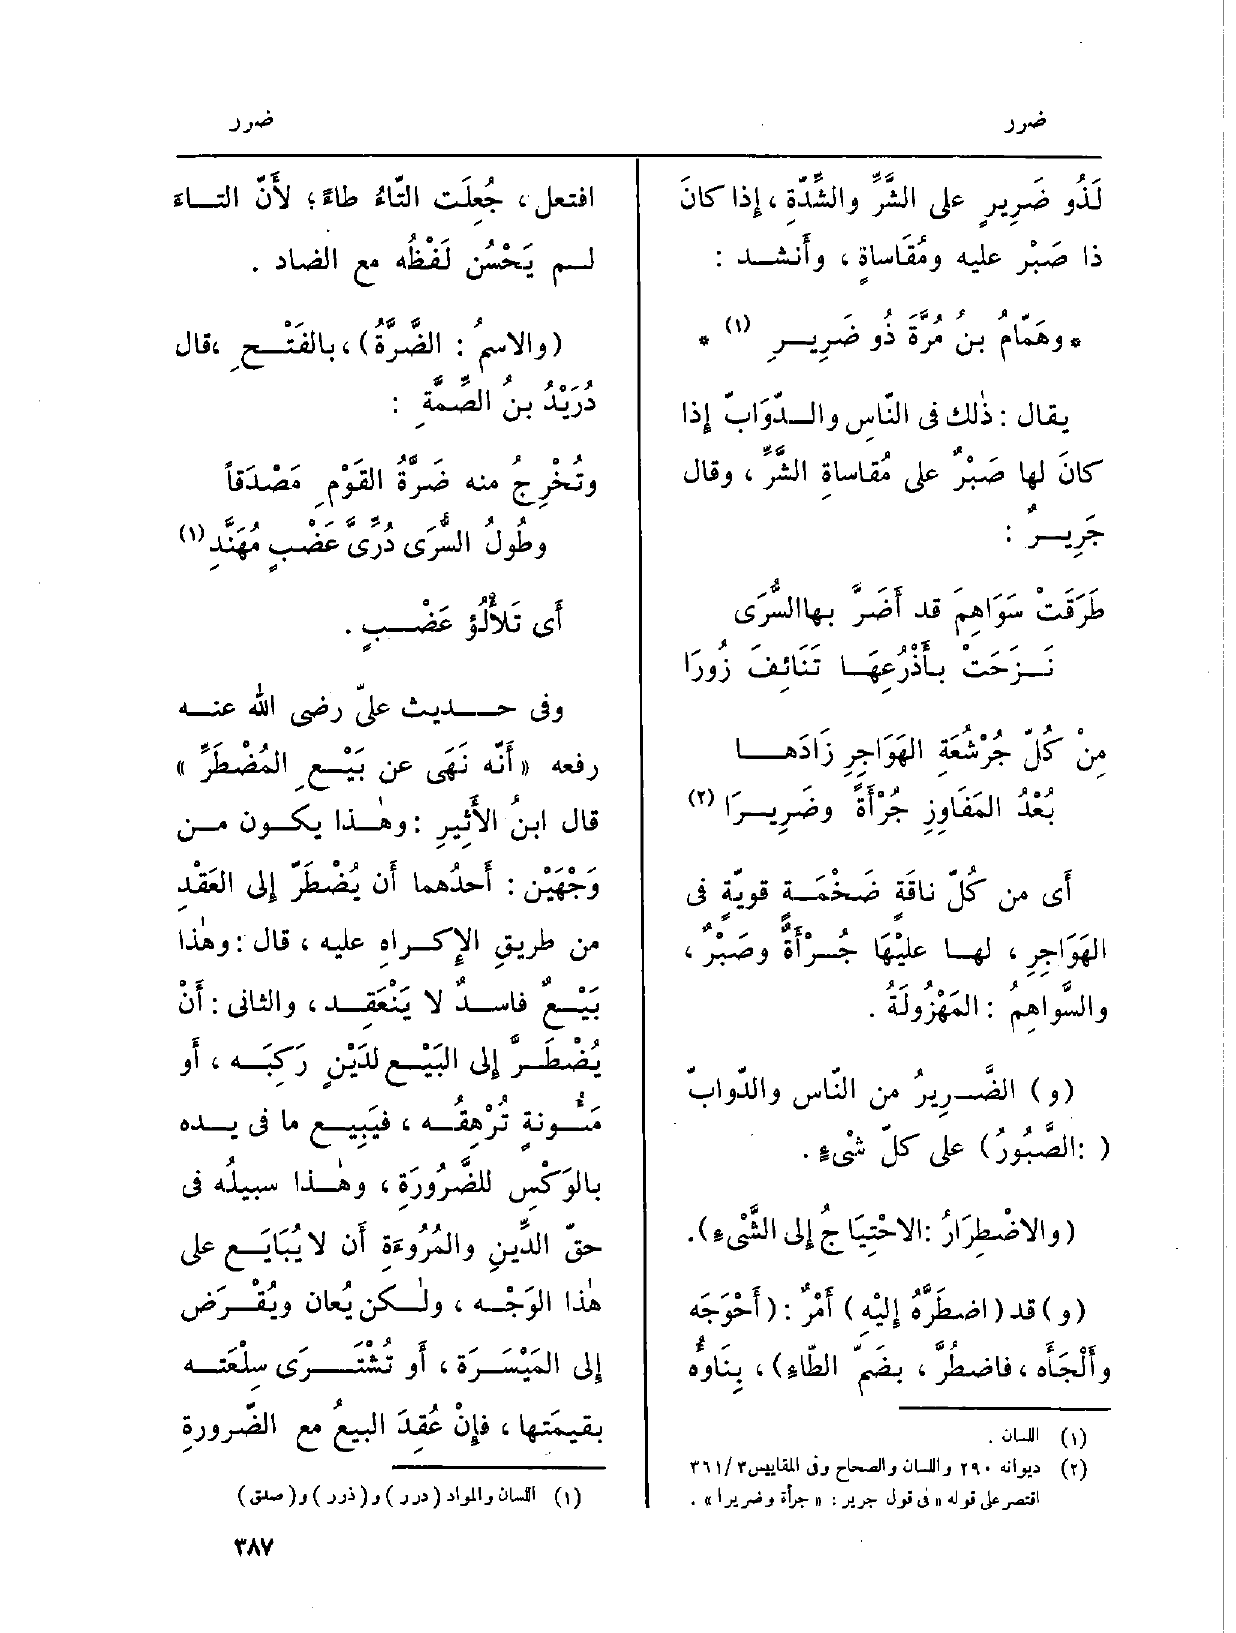 ضرر
ضرر
لَذُو ضَرِيرٍ على الشَّرِّ والشِّدَّةِ ، إذا كانَ
ذا صَبْرٍ عليه ومُقَاساةٍ ، وأَنشـد :
* وهَمَّام بنُ مُرَّةَ ذو ضَرِيـرِ (١) *
يقال : ذٰلك فى النّاسِ والـدّوَابّ إذا
كانَ لها صَبْرٌ على مُقاساةِ الشَّرِّ ، وقال
جَرِيـرٌ :
طَرَقَتْ سَوَاهِمَ قد أَضَرَّ بهاالسُّرَى
نَـزَحَتْ بأَذْرُعِهَـا تَنَائِفَ زُورَا
مِنْ كُلِّ جُرْشُعَةِ الهَوَاجِرِ زَادَهـا
بُعْدُ المَفَاوِزِ جُرْأَةً وضَرِيـرَا (٢)
أَى من كُلِّ ناقَةٍ ضَخْمَـة قويّةٍ فى
الهَوَاجِرِ ، لهـا عليْهَا جُـرْأَةٌ وصَبْرٌ ،
والسَّواهِمُ : المَهْزُولَةُ .
(و) الضَّـرِيرُ من النّاسِ والدّوابّ
( :الصَّبُورُ) على كلّ شىْءٍ .
(والاضْطِرَارُ :الاحْتِيَاجُ إلى الشَّىْءِ).
(و)قد(اضطَرَّهُ إِلَيْهِ) أَمْرٌ : (أَحْوَجَه
وأَلْجَأَه ، فاضطُرَّ ، بضَمّ الطّاءِ) ، بِنَاؤُه
(١) اللسان .
(٢) ديوانه ٢٩٠ واللسان والصحاح وفى المقاييس٣٦١/٣
اقتصر على قوله « فى قول جرير : « جرأة وضريرا » .
افتعل ، جُعِلَت التّاءُ طاءً ؛ لأَنّ التـاءَ
لـم يَحْسُن لَفْظُه مع الضاد .
(والاسمُ : الضَّرَّةُ) ،بالفَتْـحِ ،قال
دُرَيْدُ بنُ الصِّمَّةِ :
وتُخْرِجُ منه ضَرَّةُ القَوْمِ مَصْدَقاً
وطُولُ السُّرَى دُرِّىَّ عَضْبٍ مُهَنَّدِ(١)
أَى تَلأْلُؤَ عَضْـبٍ .
وفى حــديث علىّ رضى الله عنـه
رفعه «أَنّه نَهَى عن بَيْـعِ المُضْطَرِّ »
قال ابنُ الأَثِيرِ :وهٰـذا يكـون مـن
وَجْهَيْن : أَحدُهما أَن يُضْطَرَّ إلى العَقْدِ
من طريقِ الإِكـراهِ عليه ، قال : وهٰذا
بَيْـعٌ فاسـدٌ لا يَنْعَقِـد ، والثانى : أَنْ
يُضْطَـرَّ إلى البَيْـعِ لدَيْنٍ رَكِبَـه ، أَو
مَئُـونةٍ تُرْهِقُـه ، فيَبِيـع ما فى يـده
بالوَكْسِ للضَّرُورَةِ ، وهٰـذا سبيلُه فى
حقّ الدِّينِ والمُرُوءَةِ أَن لا يُبَايَـع على
هٰذا الوَجْـه ، ولٰـكن يُعان ويُقْـرَض
إلى المَيْسَـرَة ، أَو تُشْتَـرَى سلْعَتـه
بقيمَتها ، فإِنْ عُقِدَ البيعُ مع الضّرورةِ
(١) اللسان والمواد (درر) و(ذرر) و(صلق)
٣٨٧